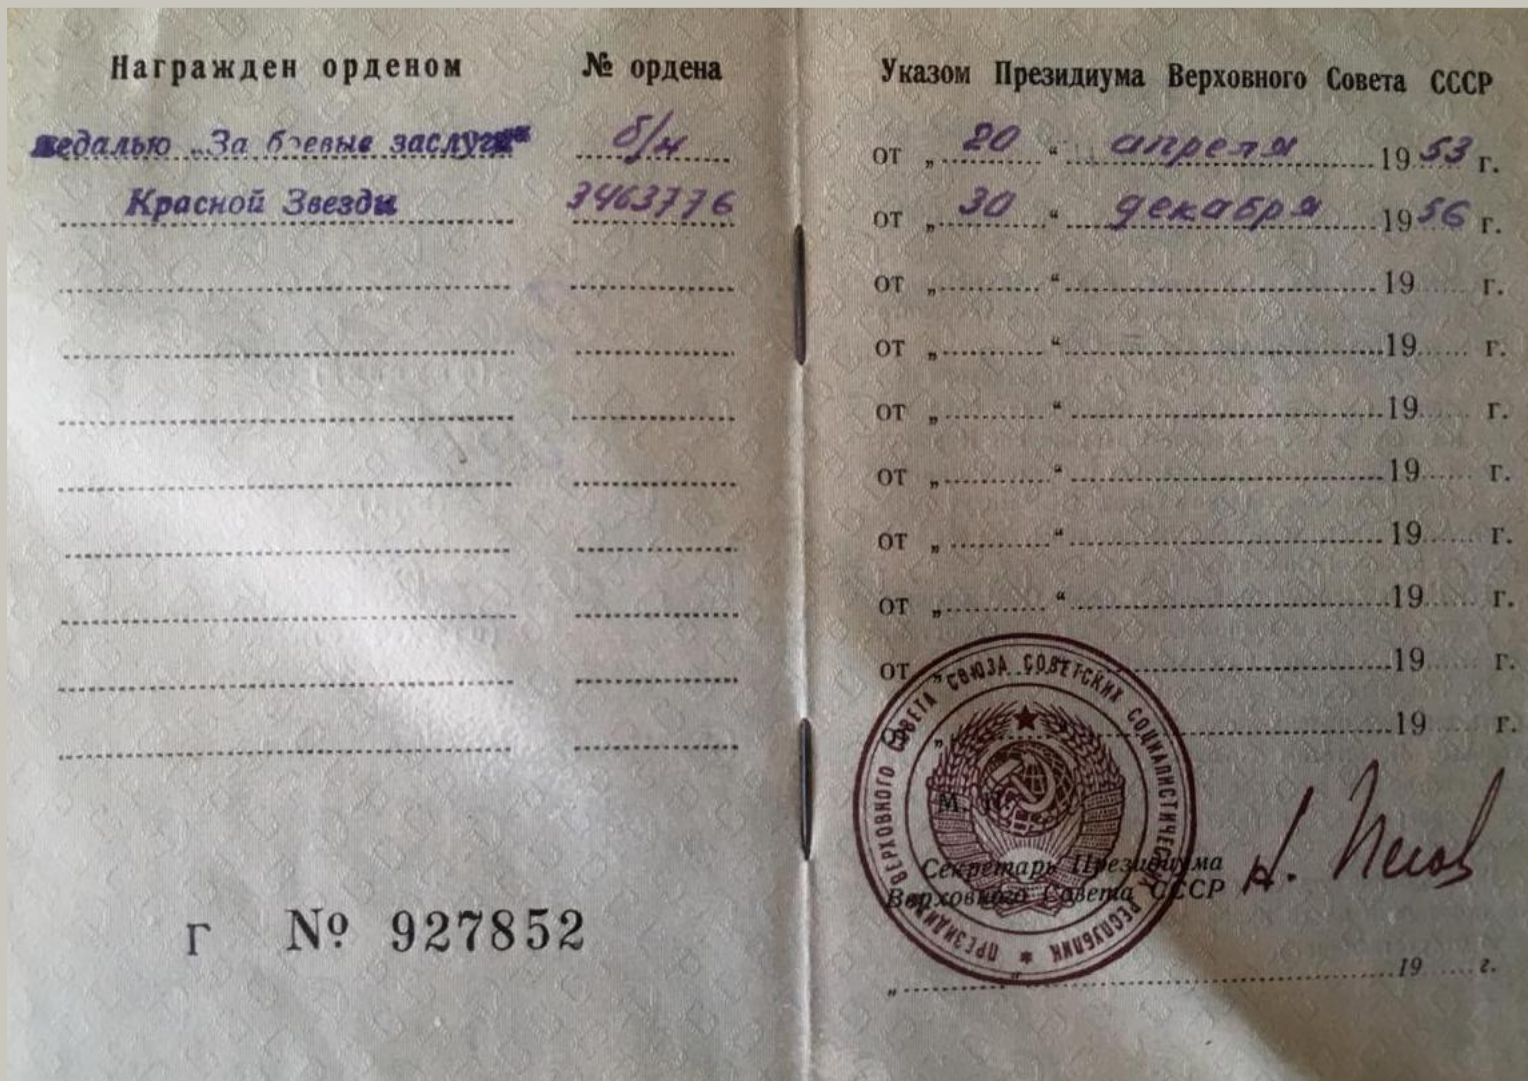 Награжден орденом № ордена
медалью „За боевые заслуги“ б/н
Красной Звезды 3463776
Г № 927852
Указом Президиума Верховного Совета СССР
от „ 20 “ апреля 1953 г.
от „ 30 “ декабря 1956 г.
от „ “ 19 г.
от „ “ 19 г.
от „ “ 19 г.
от „ “ 19 г.
от „ “ 19 г.
от „ “ 19 г.
от „ “ 19 г.
„ 19 г.
ПРЕЗИДИУМ ВЕРХОВНОГО СОВЕТА СОЮЗА СОВЕТСКИХ СОЦИАЛИСТИЧЕСКИХ РЕСПУБЛИК
М. П.
Секретарь Президиума
Верховного Совета СССР
„ “ 19 г.